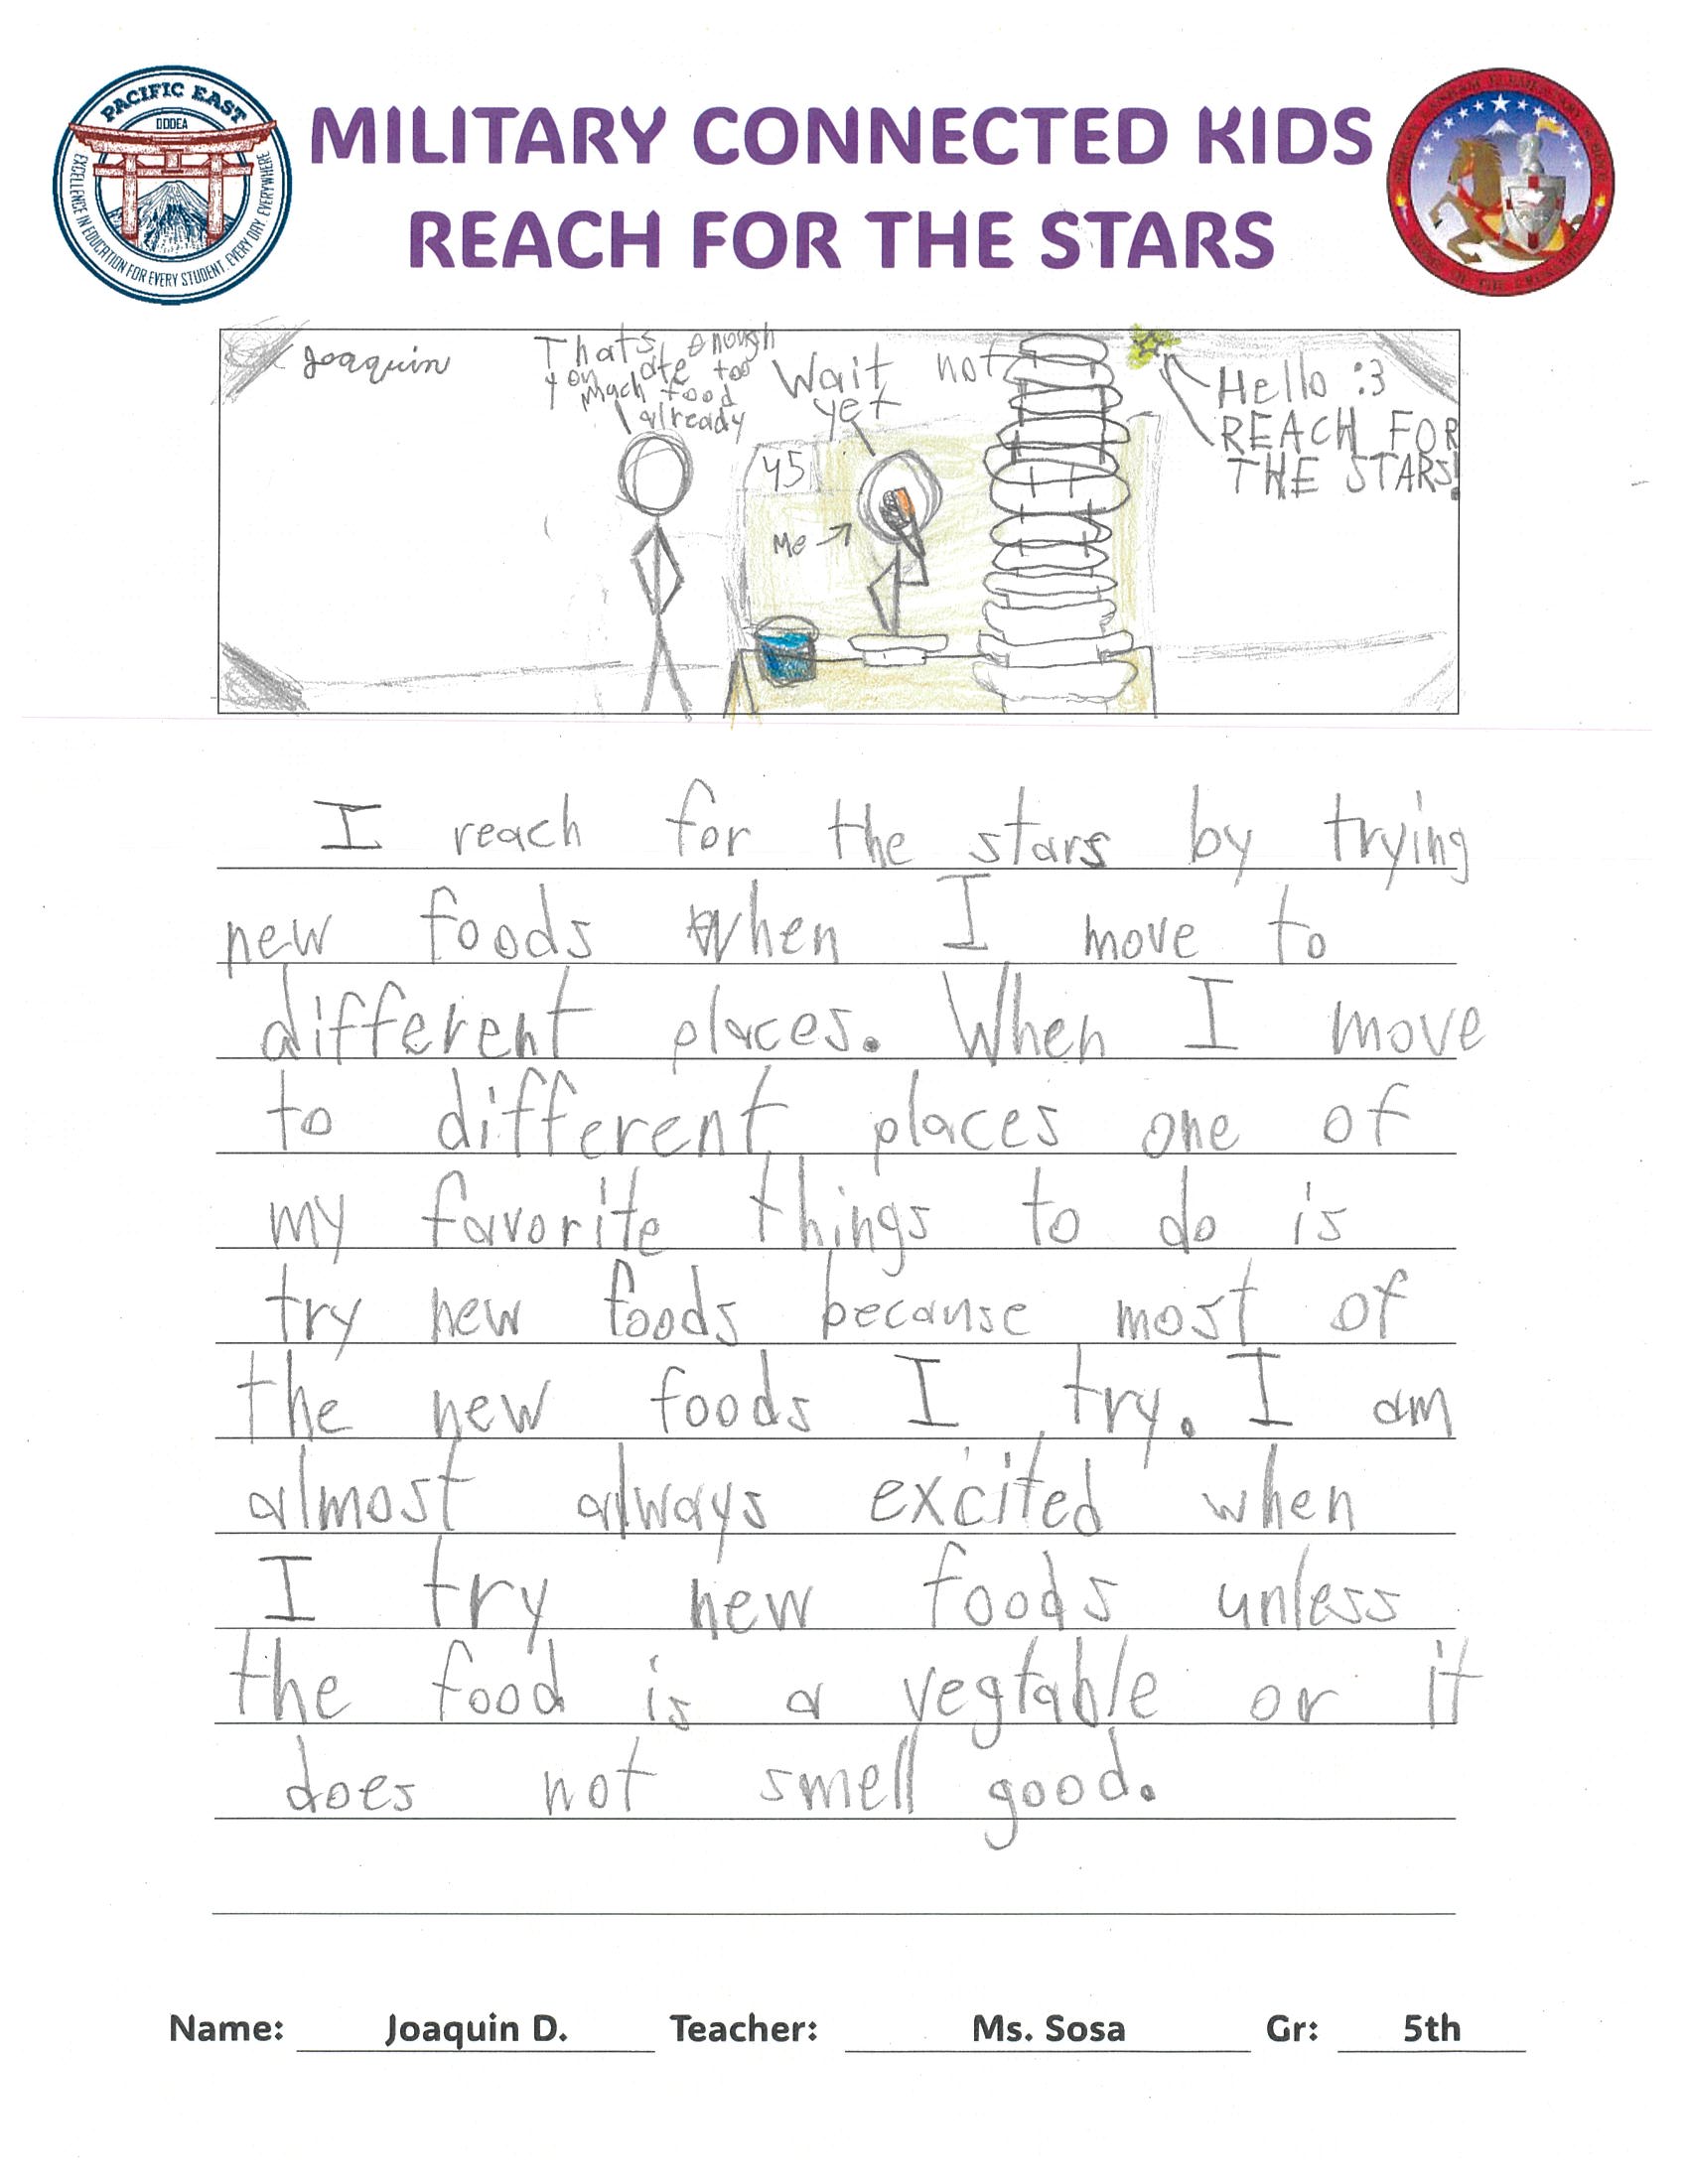 PACIFIC EAST
DODEA
EXCELLENCE IN EDUCATION FOR EVERY STUDENT, EVERY DAY, EVERYWHERE
MILITARY CONNECTED KIDS
REACH FOR THE STARS
Joaquin
Thats enough
you ate too
mach food
already
Wait not
yet
Hello :3
REACH FOR
THE STARS!
45
Me
I reach for the stars by trying
new foods when I move to
different places. When I move
to different places one of
my favorite things to do is
try new foods because most of
the new foods I try. I am
almost always excited when
I try new foods unless
the food is a vegtable or it
does not smell good.
Name: Joaquin D. Teacher: Ms. Sosa Gr: 5th